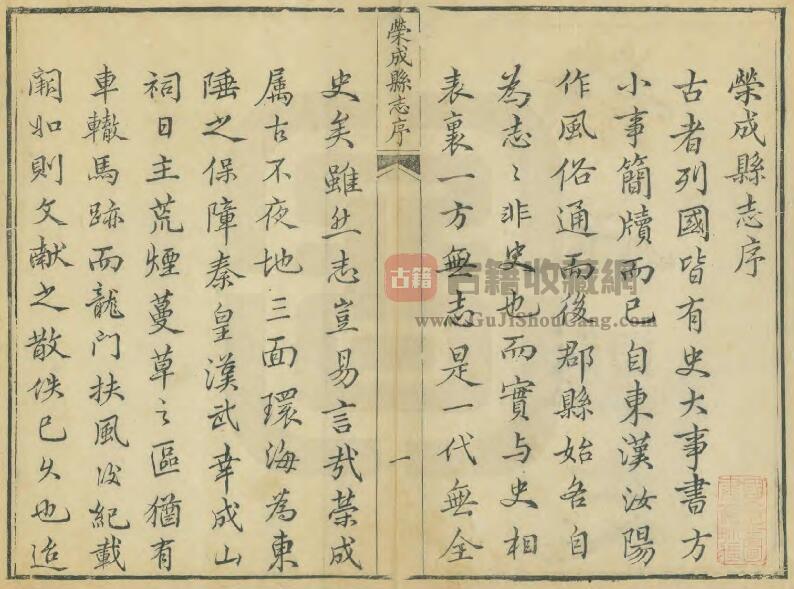 榮成縣志序
古者列國皆有史大事書方
小事簡牘而已自東漢汝陽
作風俗通而後郡縣始各自
為志〻非史也而實与史相
表裏一方無志是一代無全
榮成縣志序
一
史矣雖然志豈易言哉榮成
属古不夜地三面環海為東
陲之保障秦皇漢武幸成山
祠日主荒煙蔓草之區猶有
車轍馬跡而龍门扶風後紀載
闕如則文献之散佚已久也迨
古籍
古籍收藏網
www.GuJiShouCang.com